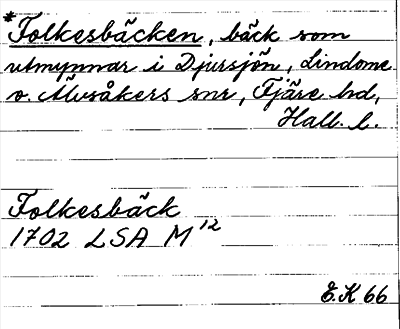 *Folkesbäcken, bäck som
utmynnar i Djursjön, Lindome
o. Älvsåkers snr, Fjäre hd,
Hall. l.
Folkesbäck
1702 LSA M¹²
E.K 66